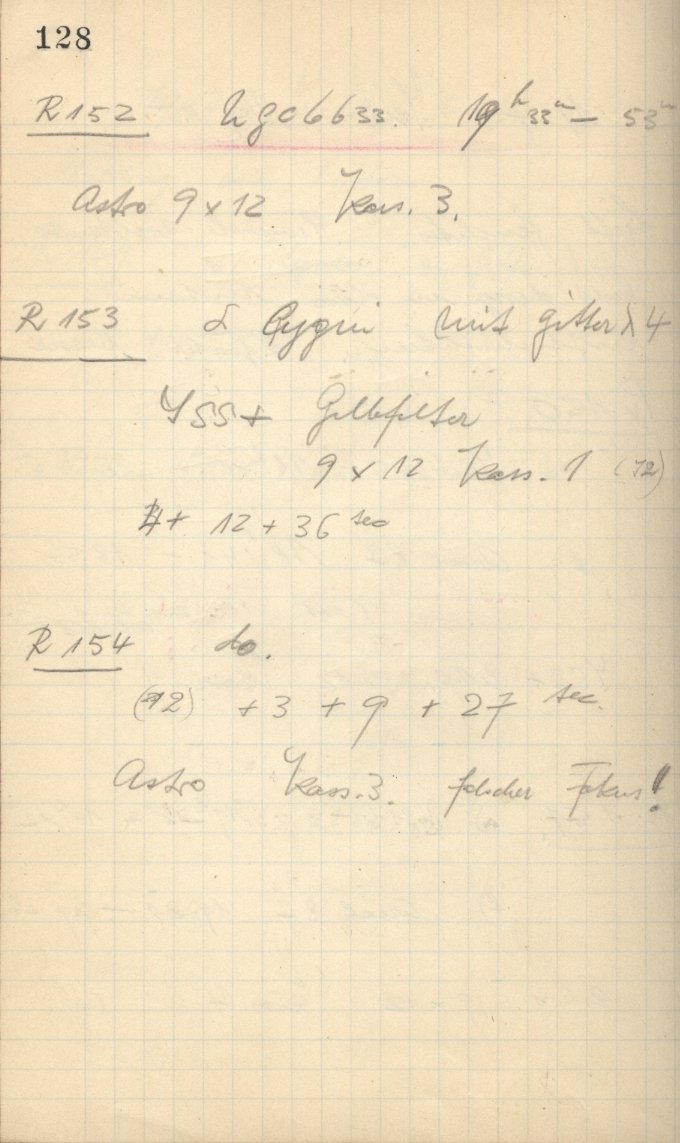 128
R 152 Ngc 6633. 19h 33m – 53m
Astro 9 x 12 Kass. 3.
R 153 α Cygni mit Gitter 4
Gelbfilter
9 x 12 Kass. 1 (12)
4 + 12 + 36 sec
R 154 do.
(12) + 3 + 9 + 27 sec.
Astro Kass. 3. falscher Fokus!